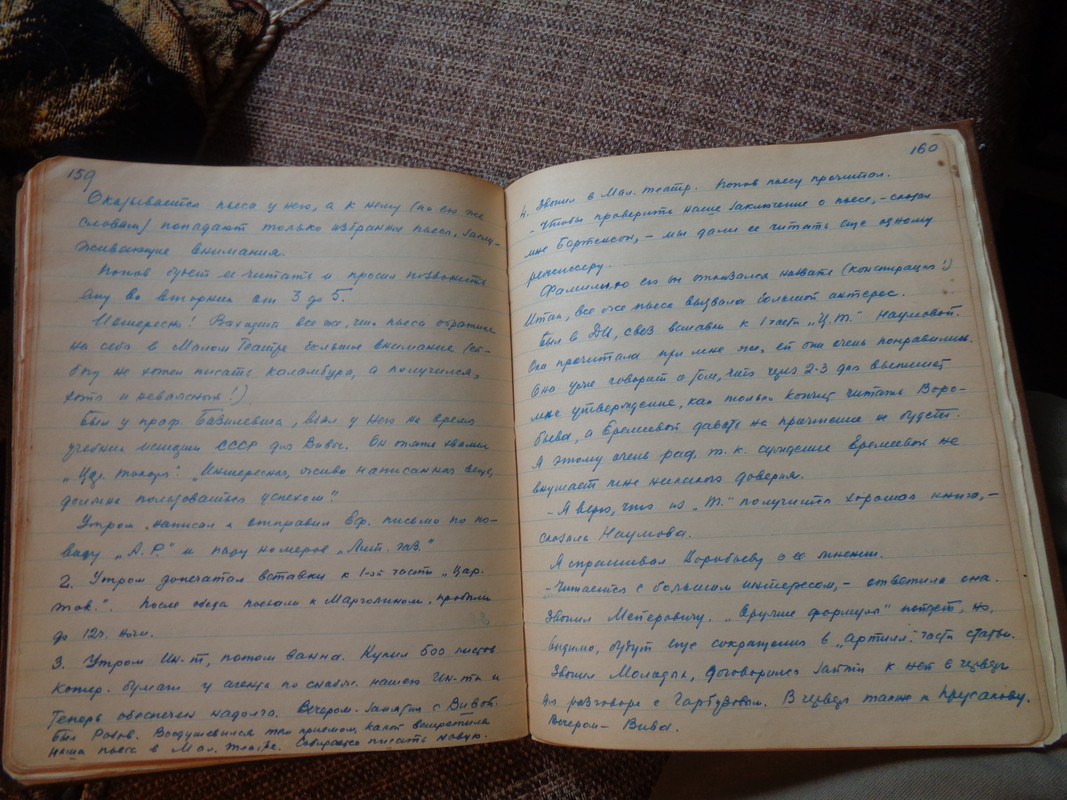 159
Оказывается пьеса у него, а к нему (по ея же
словам) попадают только избранные пьесы, заслу-
живающие внимания.
Попов будет ее читать и просил позвонить
ему во вторник от 3 до 5.
Интересно! Важно все же, что пьеса обратила
на себя в Малом Театре большое внимание (ей-
богу не хотел писать каламбура, а получился,
хотя и неважный!)
Был у проф. Базилевича, взял у него на время
учебник истории СССР для Вивы. Он опять хвалил
„Цар. токаря": „Интересная, живо написанная вещь,
должна пользоваться успехом"
Утром написал и отправил Еф. письмо по по-
воду „А.Р." и пару номеров „Лит. газ."
2. Утром допечатал вставки к 1-ой части „Цар.
ток.". После обеда поехали к Марголиным, пробыли
до 12ч. ночи.
3. Утром Ин-т, потом ванна. Купил 500 листов
бумаги у агента по снабж. нашего Ин-та и
теперь обеспечен надолго. Вечером - занятия с Вивой.
Был Розов. Воодушевился тем приемом, какой встретила
наша пьеса в Мал. театре. Собирается писать новую.
160
4. Звонил в Мал. театр. Попов пьесу прочитал.
- Чтобы проверить наше заключение о пьесе, - сказал
мне Бортенсон, - мы дали ее читать еще одному
режиссеру.
Фамилию его он отказался назвать (конспирация!)
Итак, все же пьеса вызвала большой интерес.
Был в ДИ, свез вставки к 1 части „Ц.Т." Наумовой.
Она прочитала при мне же, ей они очень понравились.
Она уже говорит о том, что через 2-3 дня вышлет
мне утверждение, как только кончит читать Воро-
бьева, а Еремеевой давать на прочтение не будет.
Я этому очень рад, т.к. суждение Еремеевой не
внушает мне никакого доверия.
- Я верю, что из „Т." получится хорошая книга, -
сказала Наумова.
Я спрашивал Воробьеву о ее мнении.
- Читается с большим интересом, - ответила она.
Звонил Мейеровичу. „Оружие формула" пойдет, но,
видимо, будут еще сокращения в артилл. части статьи.
Звонил Молодая, договорился зайти к ней в четверг
для разговора с Гарбузовым. В четверг также к Прусакову.
Вечером - Вива.